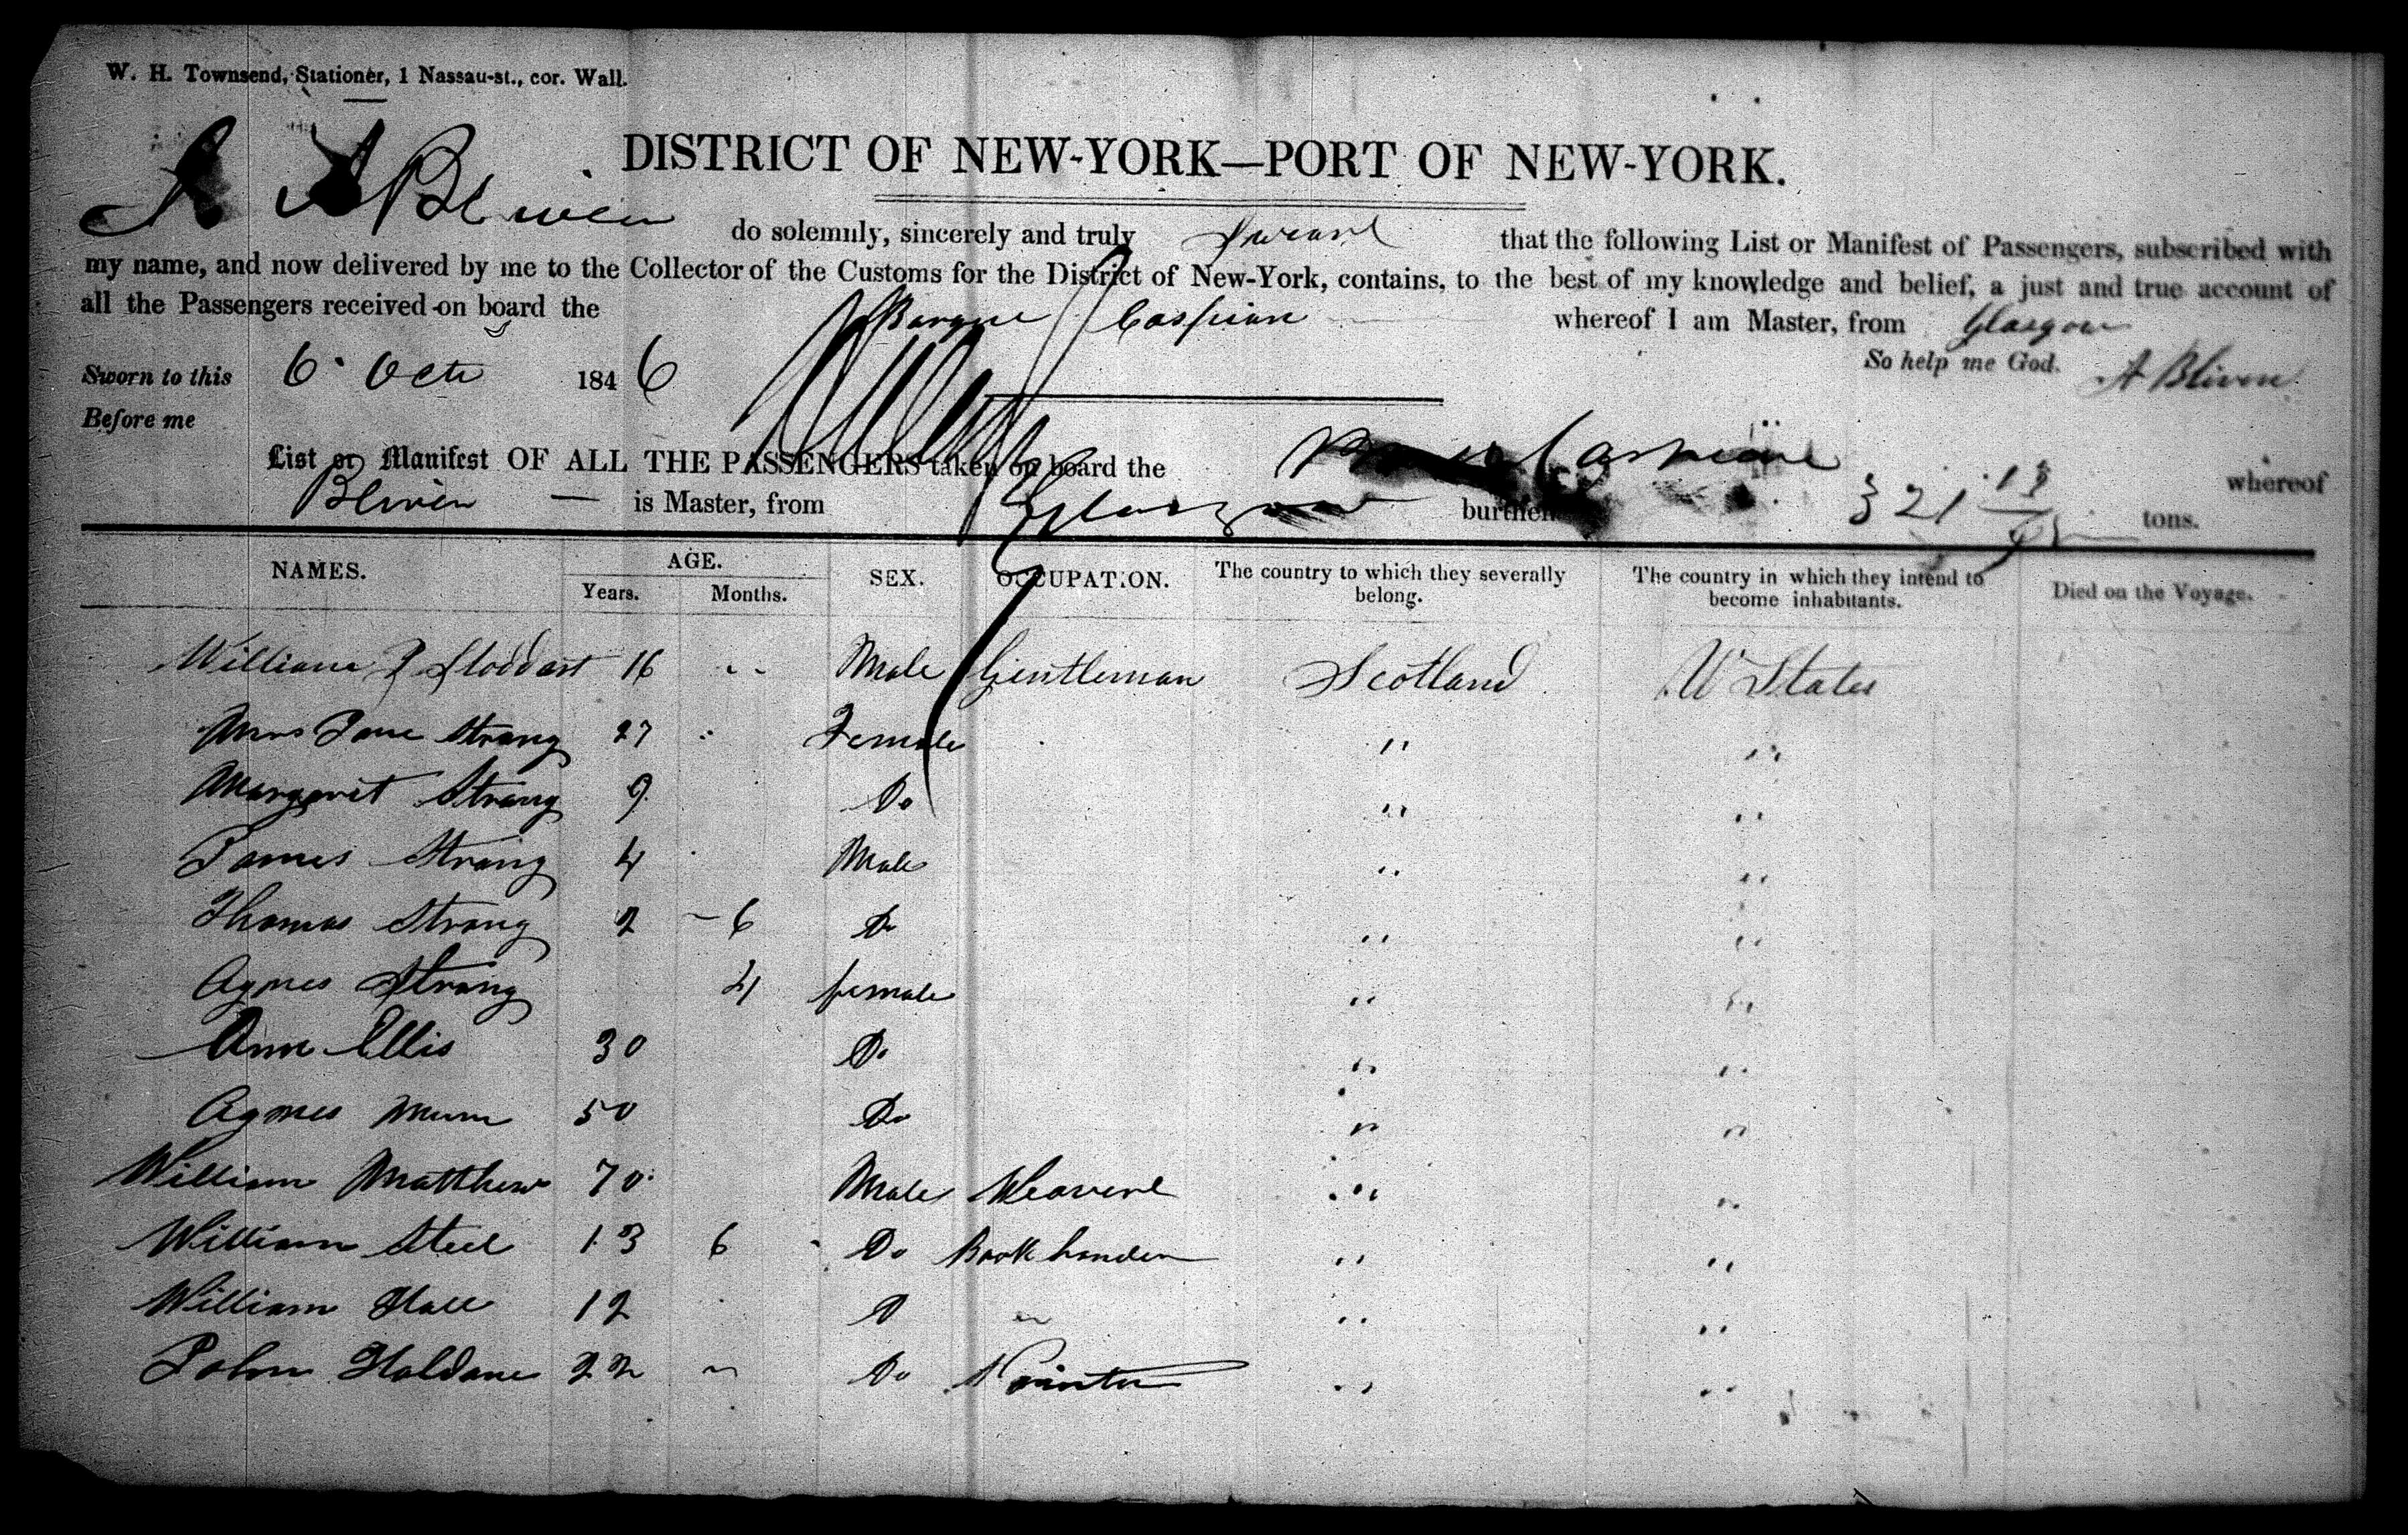 W. H. Townsend, Stationer, 1 Nassau-st., cor. Wall.
DISTRICT OF NEW-YORK—PORT OF NEW-YORK.
I A Bliven do solemnly, sincerely and truly Swear that the following List or Manifest of Passengers, subscribed with
my name, and now delivered by me to the Collector of the Customs for the District of New-York, contains, to the best of my knowledge and belief, a just and true account of
all the Passengers received on board the Barque Caspian whereof I am Master, from Glasgow
So help me God. A Bliven
Sworn to this 6 Octr 1846
Before me
List or Manifest OF ALL THE PASSENGERS taken on board the Barque Caspian whereof
Bliven is Master, from Glasgow burthen 321 13/95 tons.
NAMES. AGE. SEX. OCCUPATION. The country to which they severally belong. The country in which they intend to become inhabitants. Died on the Voyage.
Years. Months.
William Stoddart 16 " Male Gentleman Scotland U States
Mrs Jane Strang 27 Female " "
Margaret Strang 9 Do " "
James Strang 4 Male " "
Thomas Strang 2 6 Do " "
Agnes Strang 4 female " "
Ann Ellis 30 Do " "
Agnes 50 Do " "
William Matthew 70 Male " "
William Steel 13 6 Do " "
William Hall 12 D " " "
John Haldane 22 " Do " "